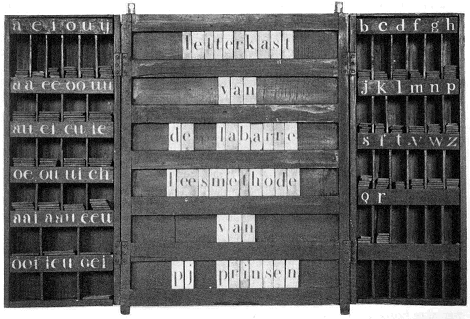 a e i o u ij
aa ee oo uu
au ei eu ie
oe ou ui ch
aai aau eeu
ooi ieu oei
letterkast
van
de labarre
leesmethode
van
pj prinsen
b c d f g h
j k l m n p
s t v w z
q r